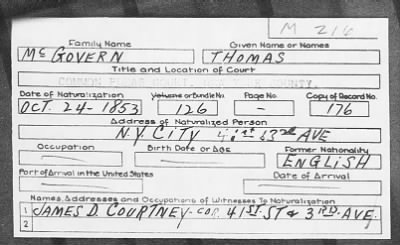 M 216
Family Name Given Name or Names
McGOVERN THOMAS
Title and Location of Court
COMMON PLEAS COURT, NEW YORK COUNTY.
Date of Naturalization Volume or Bundle No. Page No. Copy of Record No.
OCT. 24-1853 126 - 176
Address of Naturalized Person
N.Y. CITY 41st & 3rd AVE
Occupation Birth Date or Age Former Nationality
ENGLISH
Port of Arrival in the United States Date of Arrival
Names, Addresses and Occupations of Witnesses To Naturalization
1 JAMES D. COURTNEY - COR. 41ST. ST & 3RD. AVE.
2